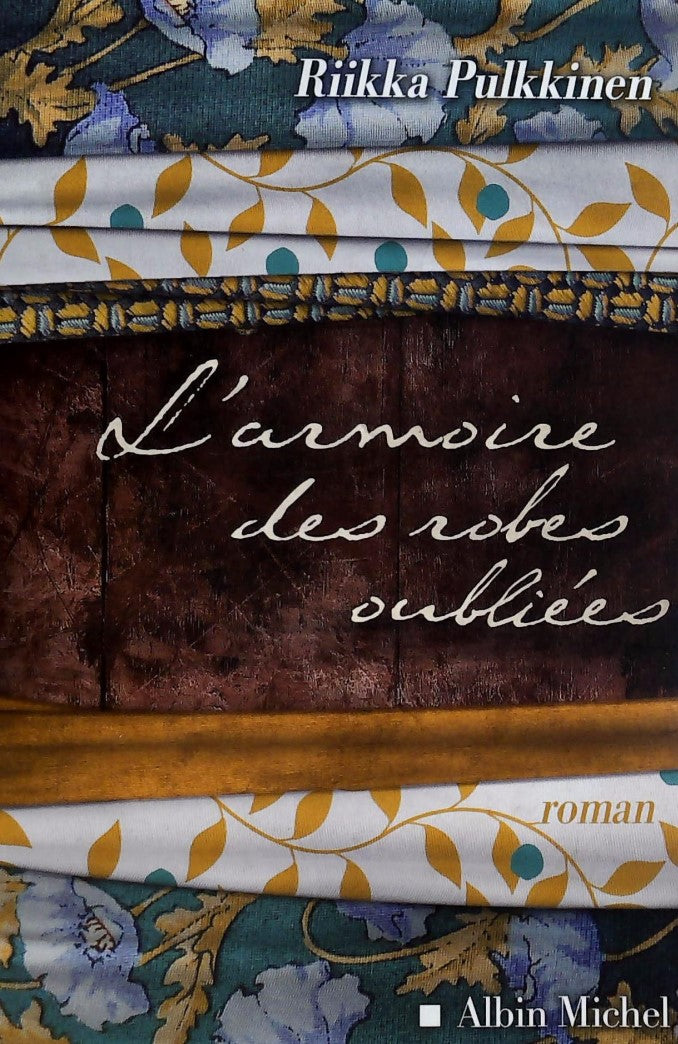 Riikka Pulkkinen
L'armoire
des robes
oubliées
roman
Albin Michel